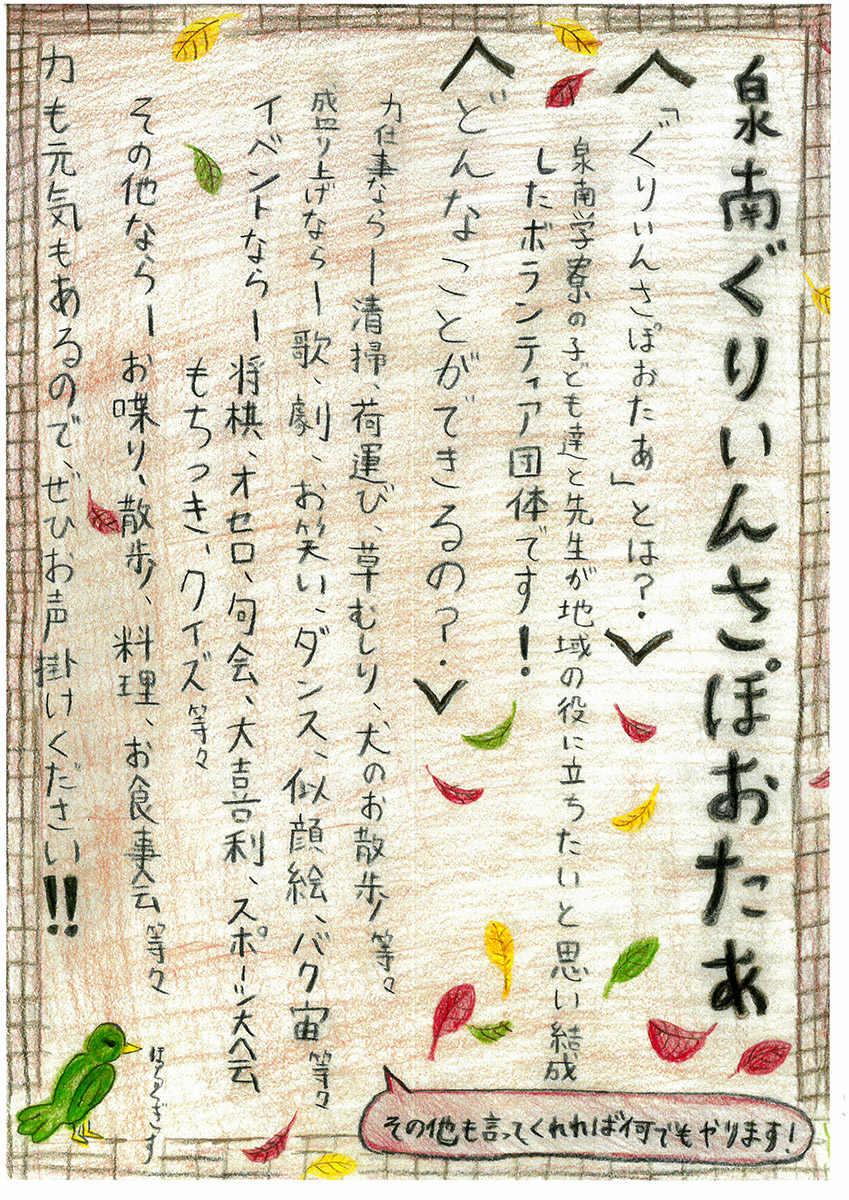 泉南ぐりぃんさぽおたぁ
〈「ぐりぃんさぽおたぁ」とは?〉
泉南学寮の子ども達と先生が地域の役に立ちたいと思い結成
したボランティア団体です!
〈どんなことができるの?〉
力仕事ならー清掃、荷運び、草むしり、犬のお散歩 等々
盛り上げならー歌、劇、お笑い、ダンス、似顔絵、バク宙 等々
イベントならー将棋、オセロ、句会、大喜利、スポーツ大会
もちつき、クイズ 等々
その他ならーお喋り、散歩、料理、お食事会 等々
力も元気もあるので、ぜひお声掛けください!!
ほととぎす
その他も言ってくれれば何でもやります!